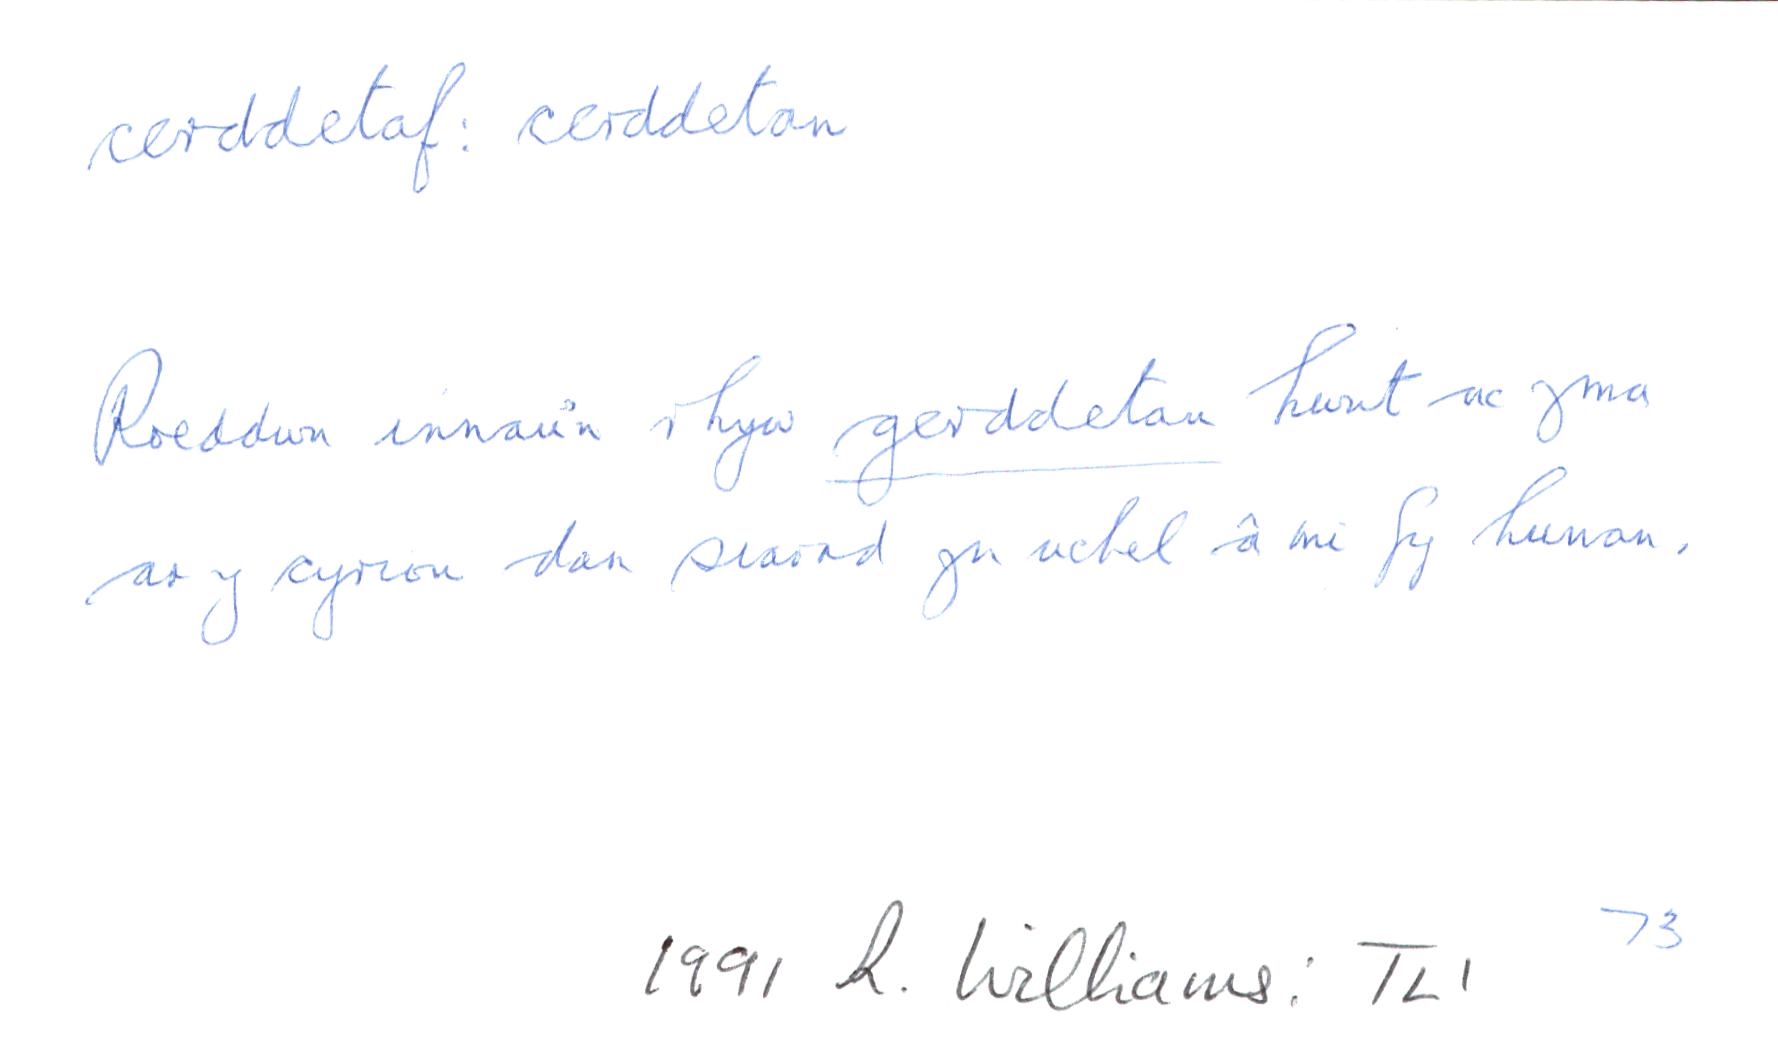 cerddetaf: cerddetan
Roeddwn innau'n rhyw gerddetan hwnt ac yma
ar y cyrion dan siarad yn uchel â mi fy hunan.
73
1991 R. Williams: TLl